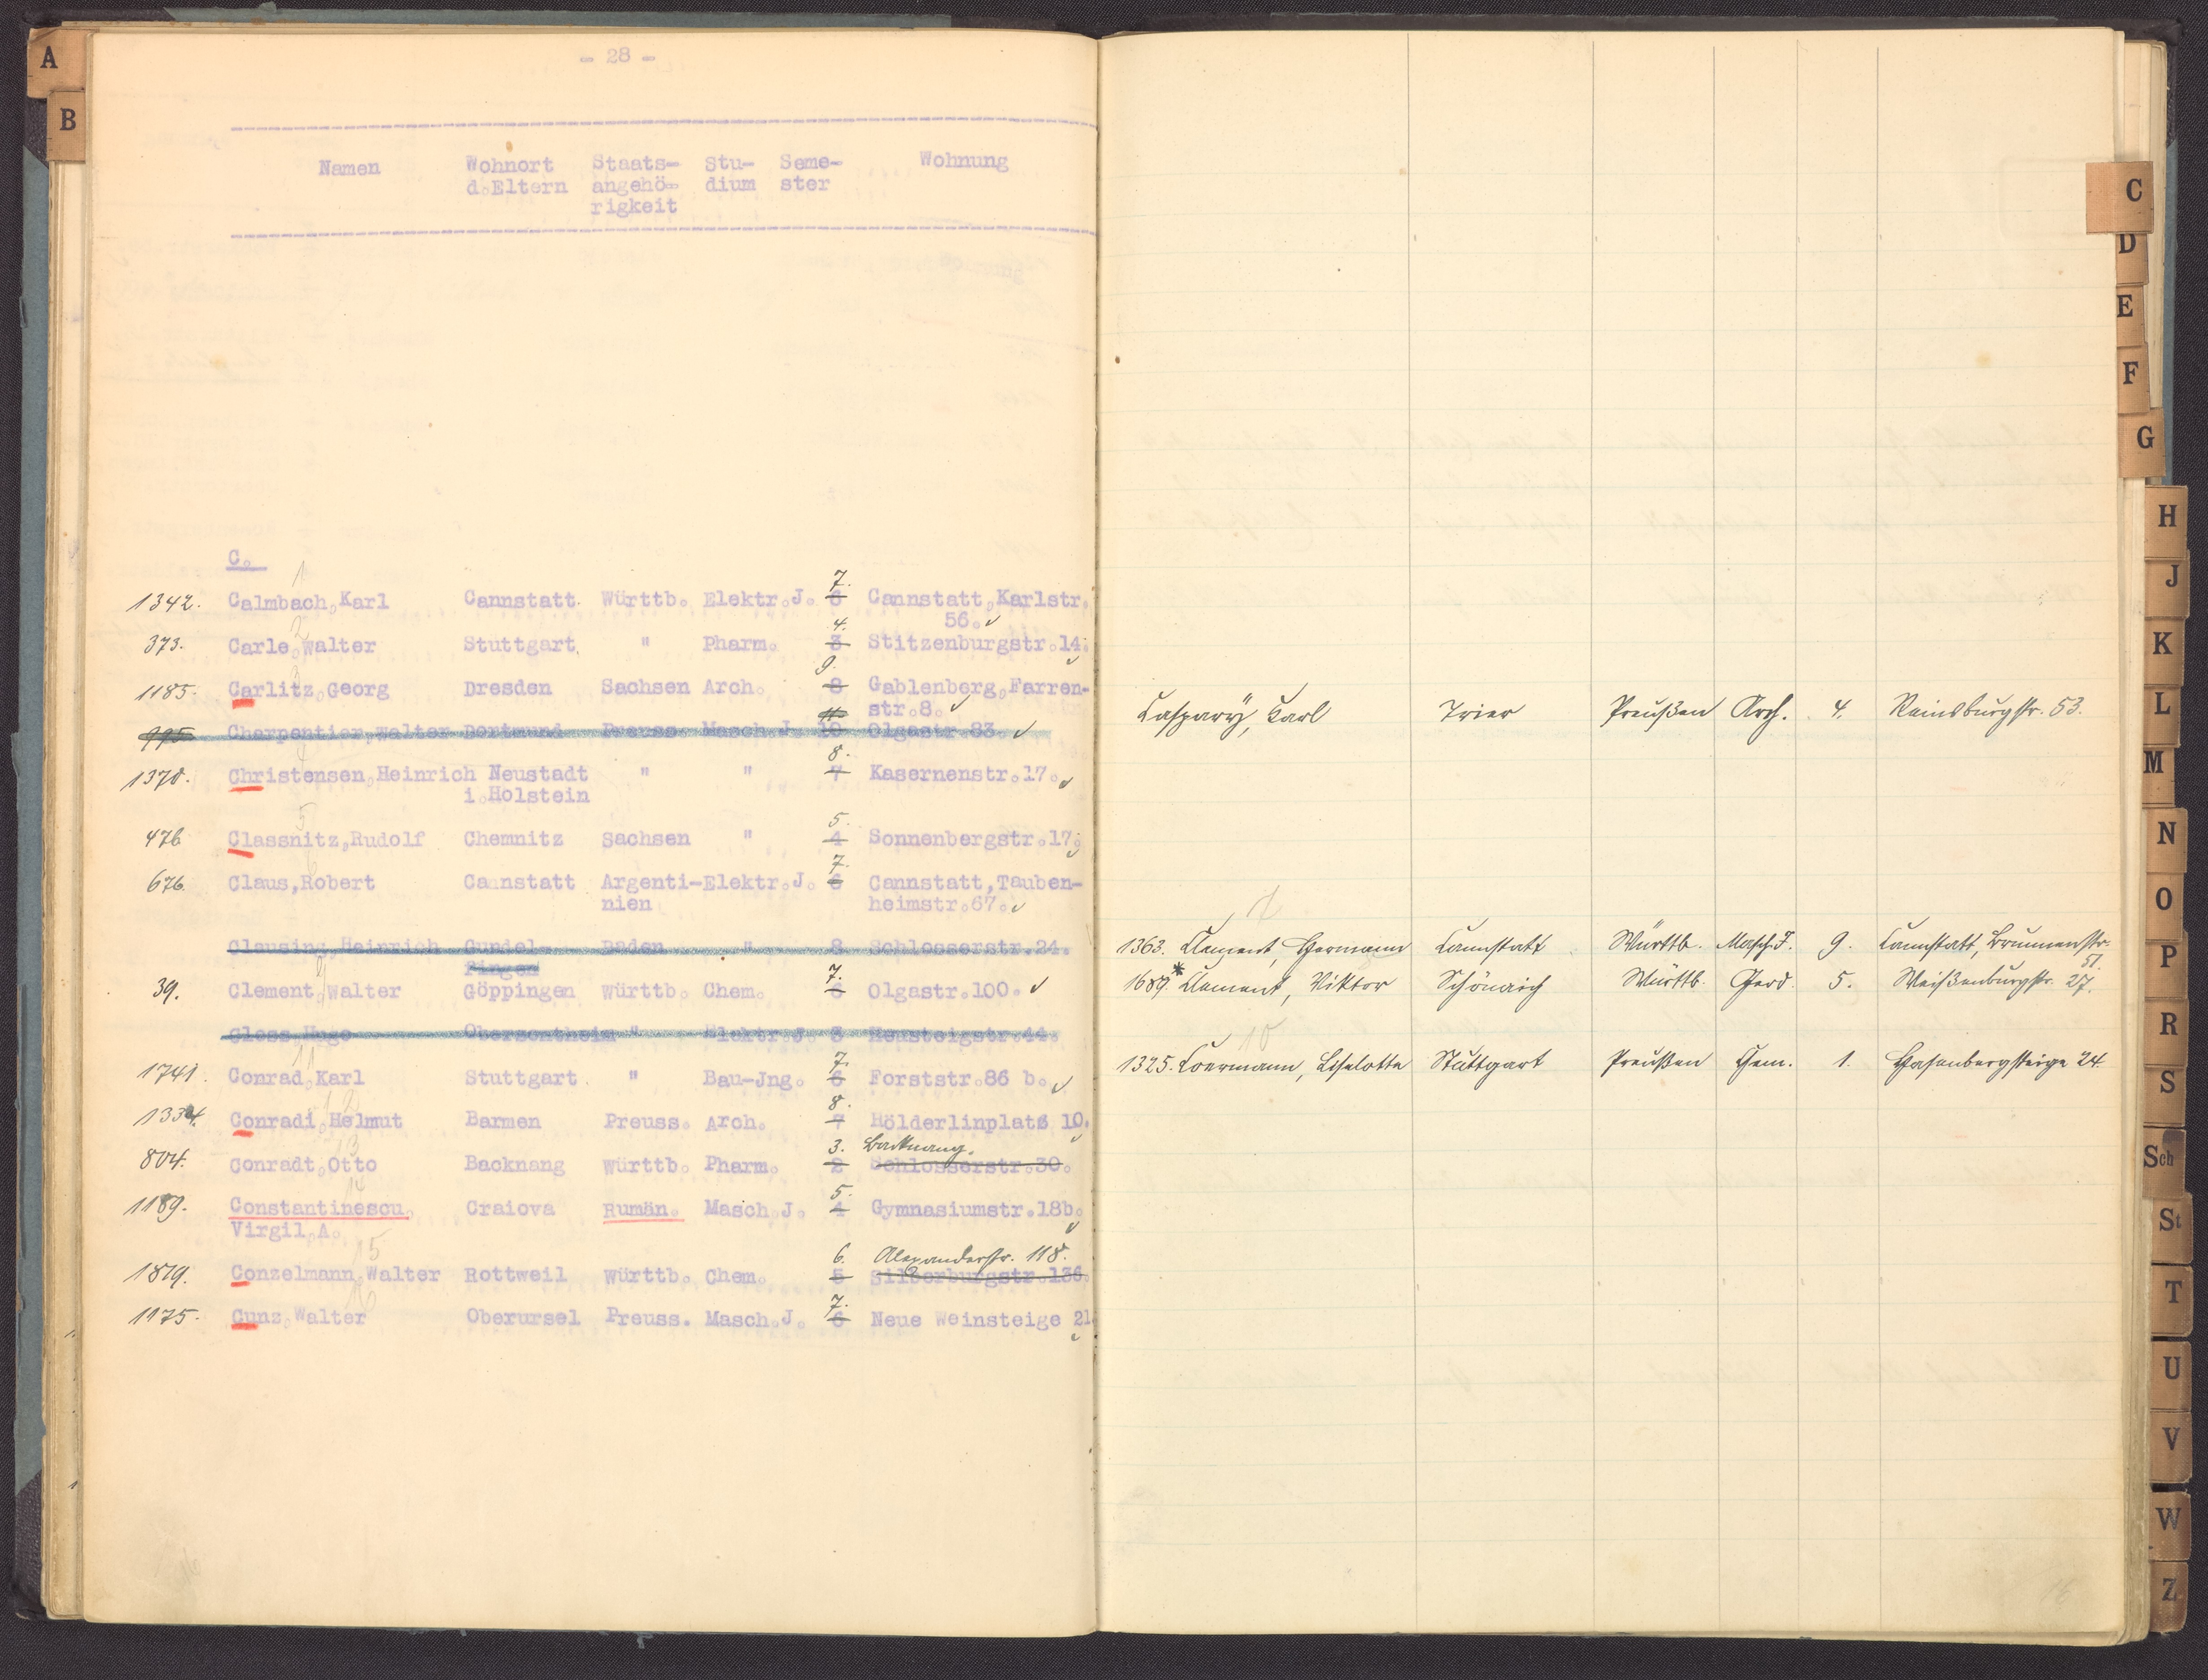 - 28 -
Namen Wohnort Staats- Stu- Seme- Wohnung
d.Eltern angehö- dium ster
rigkeit
C.
1
7.
1342. Calmbach,Karl Cannstatt. Württb. Elektr.J. 6 Cannstatt,Karlstr.
56.
2 4.
373. Carle,Walter Stuttgart. " Pharm. 3 Stitzenburgstr.14.
3 9.
1185. Carlitz,Georg Dresden Sachsen Arch. 8 Gablenberg,Farren-
str.8.
11
995 Charpentier,Walter Dortmund Preuss Masch.J. 10 Olgastr.83.
8.
1378. Christensen,Heinrich Neustadt " " 7 Kasernenstr.17.
i.Holstein
5 5.
476 Classnitz,Rudolf Chemnitz Sachsen " 4 Sonnenbergstr.17.
6 7.
676. Claus,Robert Cannstatt Argenti-Elektr.J. 6 Cannstatt,Tauben-
nien heimstr.67.
Clausing,Heinrich Gundel- Baden " 8 Schlosserstr.24.
fingen
9 7.
39. Clement,Walter Göppingen Württb. Chem. 6 Olgastr.100.
Closs,Hugo Obersontheim " Elektr.J. 3 Neusteigstr.44.
11 7.
1741. Conrad,Karl Stuttgart. " Bau-Jng. 6 Forststr.86 b.
12 8.
1334. Conradi,Helmut Barmen Preuss. Arch. 7 Hölderlinplatz 10.
13 3. Backnang.
804. Conradt,Otto Backnang Württb. Pharm. 2 Schlosserstr.30.
14 5.
1189. Constantinescu, Craiova Rumän. Masch.J. 4 Gymnasiumstr.18b.
Virgil,A.
15 6. Alexanderstr. 118.
1879. Conzelmann,Walter Rottweil Württb. Chem. 5 Silberburgstr.136.
16 7.
1175. Cunz,Walter Oberursel Preuss. Masch.J. 6 Neue Weinsteige 21
Caspary, Karl Trier Preußen Arch. 4. Reinsburgstr. 53.
1363. Clement, Hermann Cannstatt Württb. Masch.J. 9. Cannstatt, Brunnenstr.
51.
1689.* Clement, Viktor Schönaich Württb. Geod. 5. Weißenburgstr. 27.
10
1325. Coermann, Liselotte Stuttgart Preußen Chem. 1. Hasenbergsteige 24.
A
B
C
D
E
F
G
H
J
K
L
M
N
O
P
R
S
Sch
St
T
U
V
W
Z